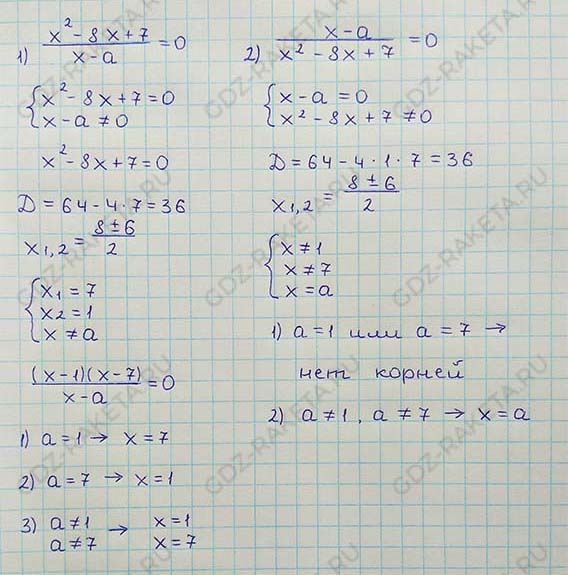 1) (x² - 8x + 7)/(x - a) = 0
{ x² - 8x + 7 = 0
x - a ≠ 0
x² - 8x + 7 = 0
D = 64 - 4 · 7 = 36
x1,2 = (8 ± 6)/2
{ x1 = 7
x2 = 1
x ≠ a
((x - 1)(x - 7))/(x - a) = 0
1) a = 1 → x = 7
2) a = 7 → x = 1
3) a ≠ 1 → x = 1
a ≠ 7 x = 7
2) (x - a)/(x² - 8x + 7) = 0
{ x - a = 0
x² - 8x + 7 ≠ 0
D = 64 - 4 · 1 · 7 = 36
x1,2 = (8 ± 6)/2
{ x ≠ 1
x ≠ 7
x = a
1) a = 1 или a = 7 →
нет корней
2) a ≠ 1, a ≠ 7 → x = a
GDZ-RAKETA.RU